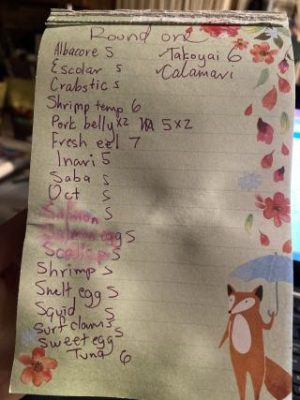 Round one
Albacore 5
Escolar 5
Crabstics 5
Shrimp temp 6
Pork belly x2 5x2
Fresh eel 7
Inari 5
Saba 5
Oct 5
Salmon 5
Salmon egg 5
Scallop 5
Shrimp 5
Smelt egg 5
Squid 5
Surf clam 5
Sweet egg 5
Tuna 6
✓Takoyai 6
✓Calamari